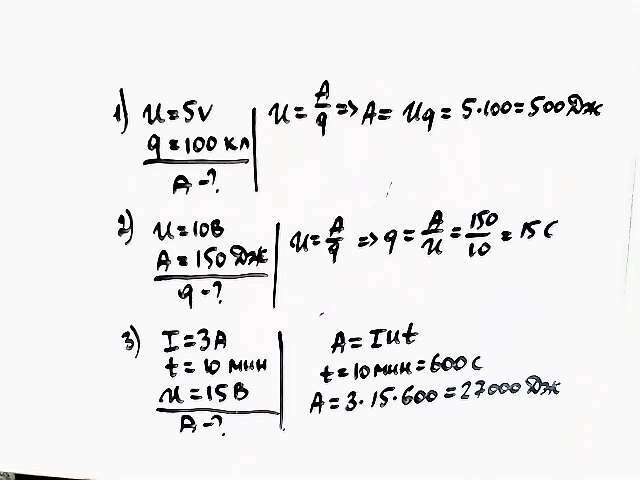 1) U = 5V
q = 100 кл
A - ?
U = A/q => A = Uq = 5·100 = 500 Дж
2) U = 10В
A = 150 Дж
q - ?
U = A/q => q = A/U = 150/10 = 15 C
3) I = 3A
t = 10 мин
U = 15В
A - ?
A = IUt
t = 10 мин = 600 C
A = 3·15·600 = 27000 Дж